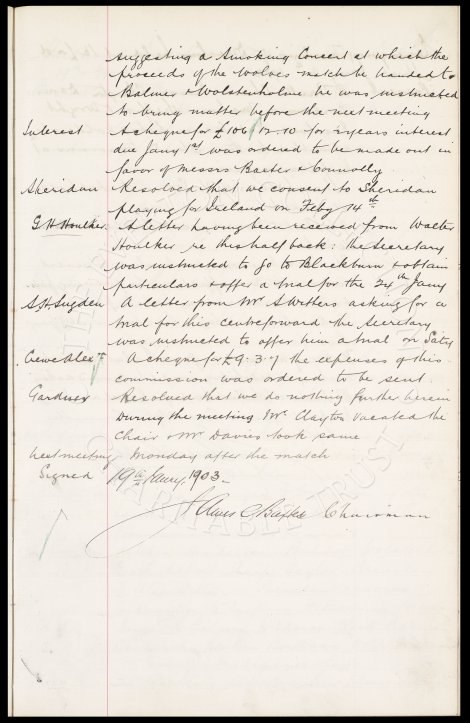 suggesting a Smoking Concert at which the
proceeds of the Wolves match be handed to
Balmer & Wolstenholme he was instructed
to bring matter before the next meeting
Interest A cheque for £106 12 10 for 2 years interest
due Jany 1st was ordered to be made out in
favor of Messrs Baxter & Connolly
Sheridan Resolved that we consent to Sheridan
playing for Ireland on Feby 14th
G H Houlker A letter having been received from Walter
Houlker re this half back: the Secretary
was instructed to go to Blackburn & obtain
particulars & offer a trial for the 24th Jany
S. H. Sugden A letter from Mr S Withers asking for a
trial for this centreforward the Secretary
was instructed to offer him a trial on Saty
Crewe Alex A cheque for £9. 3. 7 the expenses of this
commission was ordered to be sent.
Gardner Resolved that we do nothing further herein
During the meeting Mr Clayton vacated the
Chair & Mr Davies took same
Next meeting Monday after the match
Signed 19th Jany 1903
James C Baxter Chairman
CHARITABLE TRUST